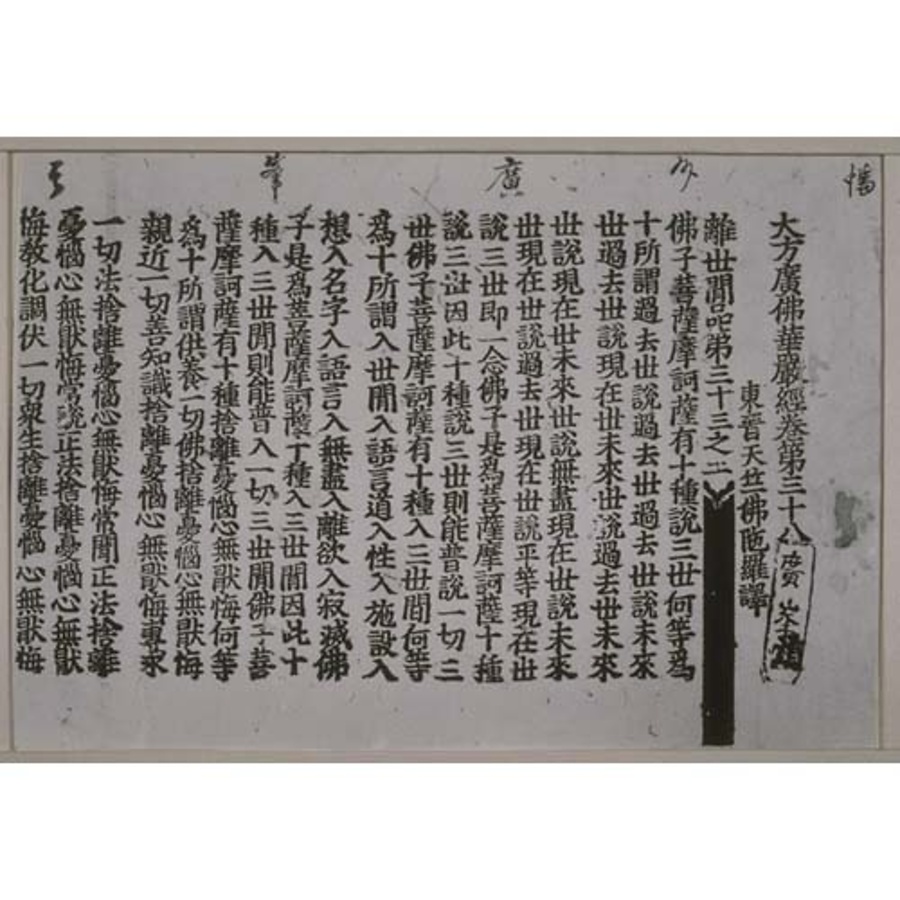 幡
廣
大方廣佛華嚴經卷第三十八
東晉天竺佛陁羅譯
離世閒品第三十三之二
佛子菩薩摩訶薩有十種說三世何等爲
十所謂過去世說過去世過去世說未來
世過去世說現在世未來世說過去世未來
世說現在世未來世說無盡現在世說未來
世現在世說過去世現在世說平等現在世
說三世即一念佛子是爲菩薩摩訶薩十種
說三世因此十種說三世則能普說一切三
世佛子菩薩摩訶薩有十種入三世間何等
爲十所謂入世閒入語言道入性入施設入
想入名字入語言入無盡入離欲入寂滅佛
子是爲菩薩摩訶薩十種入三世閒因此十
種入三世閒則能普入一切三世閒佛子菩
薩摩訶薩有十種捨離憂惱心無猒悔何等
爲十所謂供養一切佛捨離憂惱心無猒悔
親近一切善知識捨離憂惱心無猒悔專求
一切法捨離憂惱心無猒悔常聞正法捨離
憂惱心無猒悔常說正法捨離憂惱心無猒
悔教化調伏一切衆生捨離憂惱心無猒悔